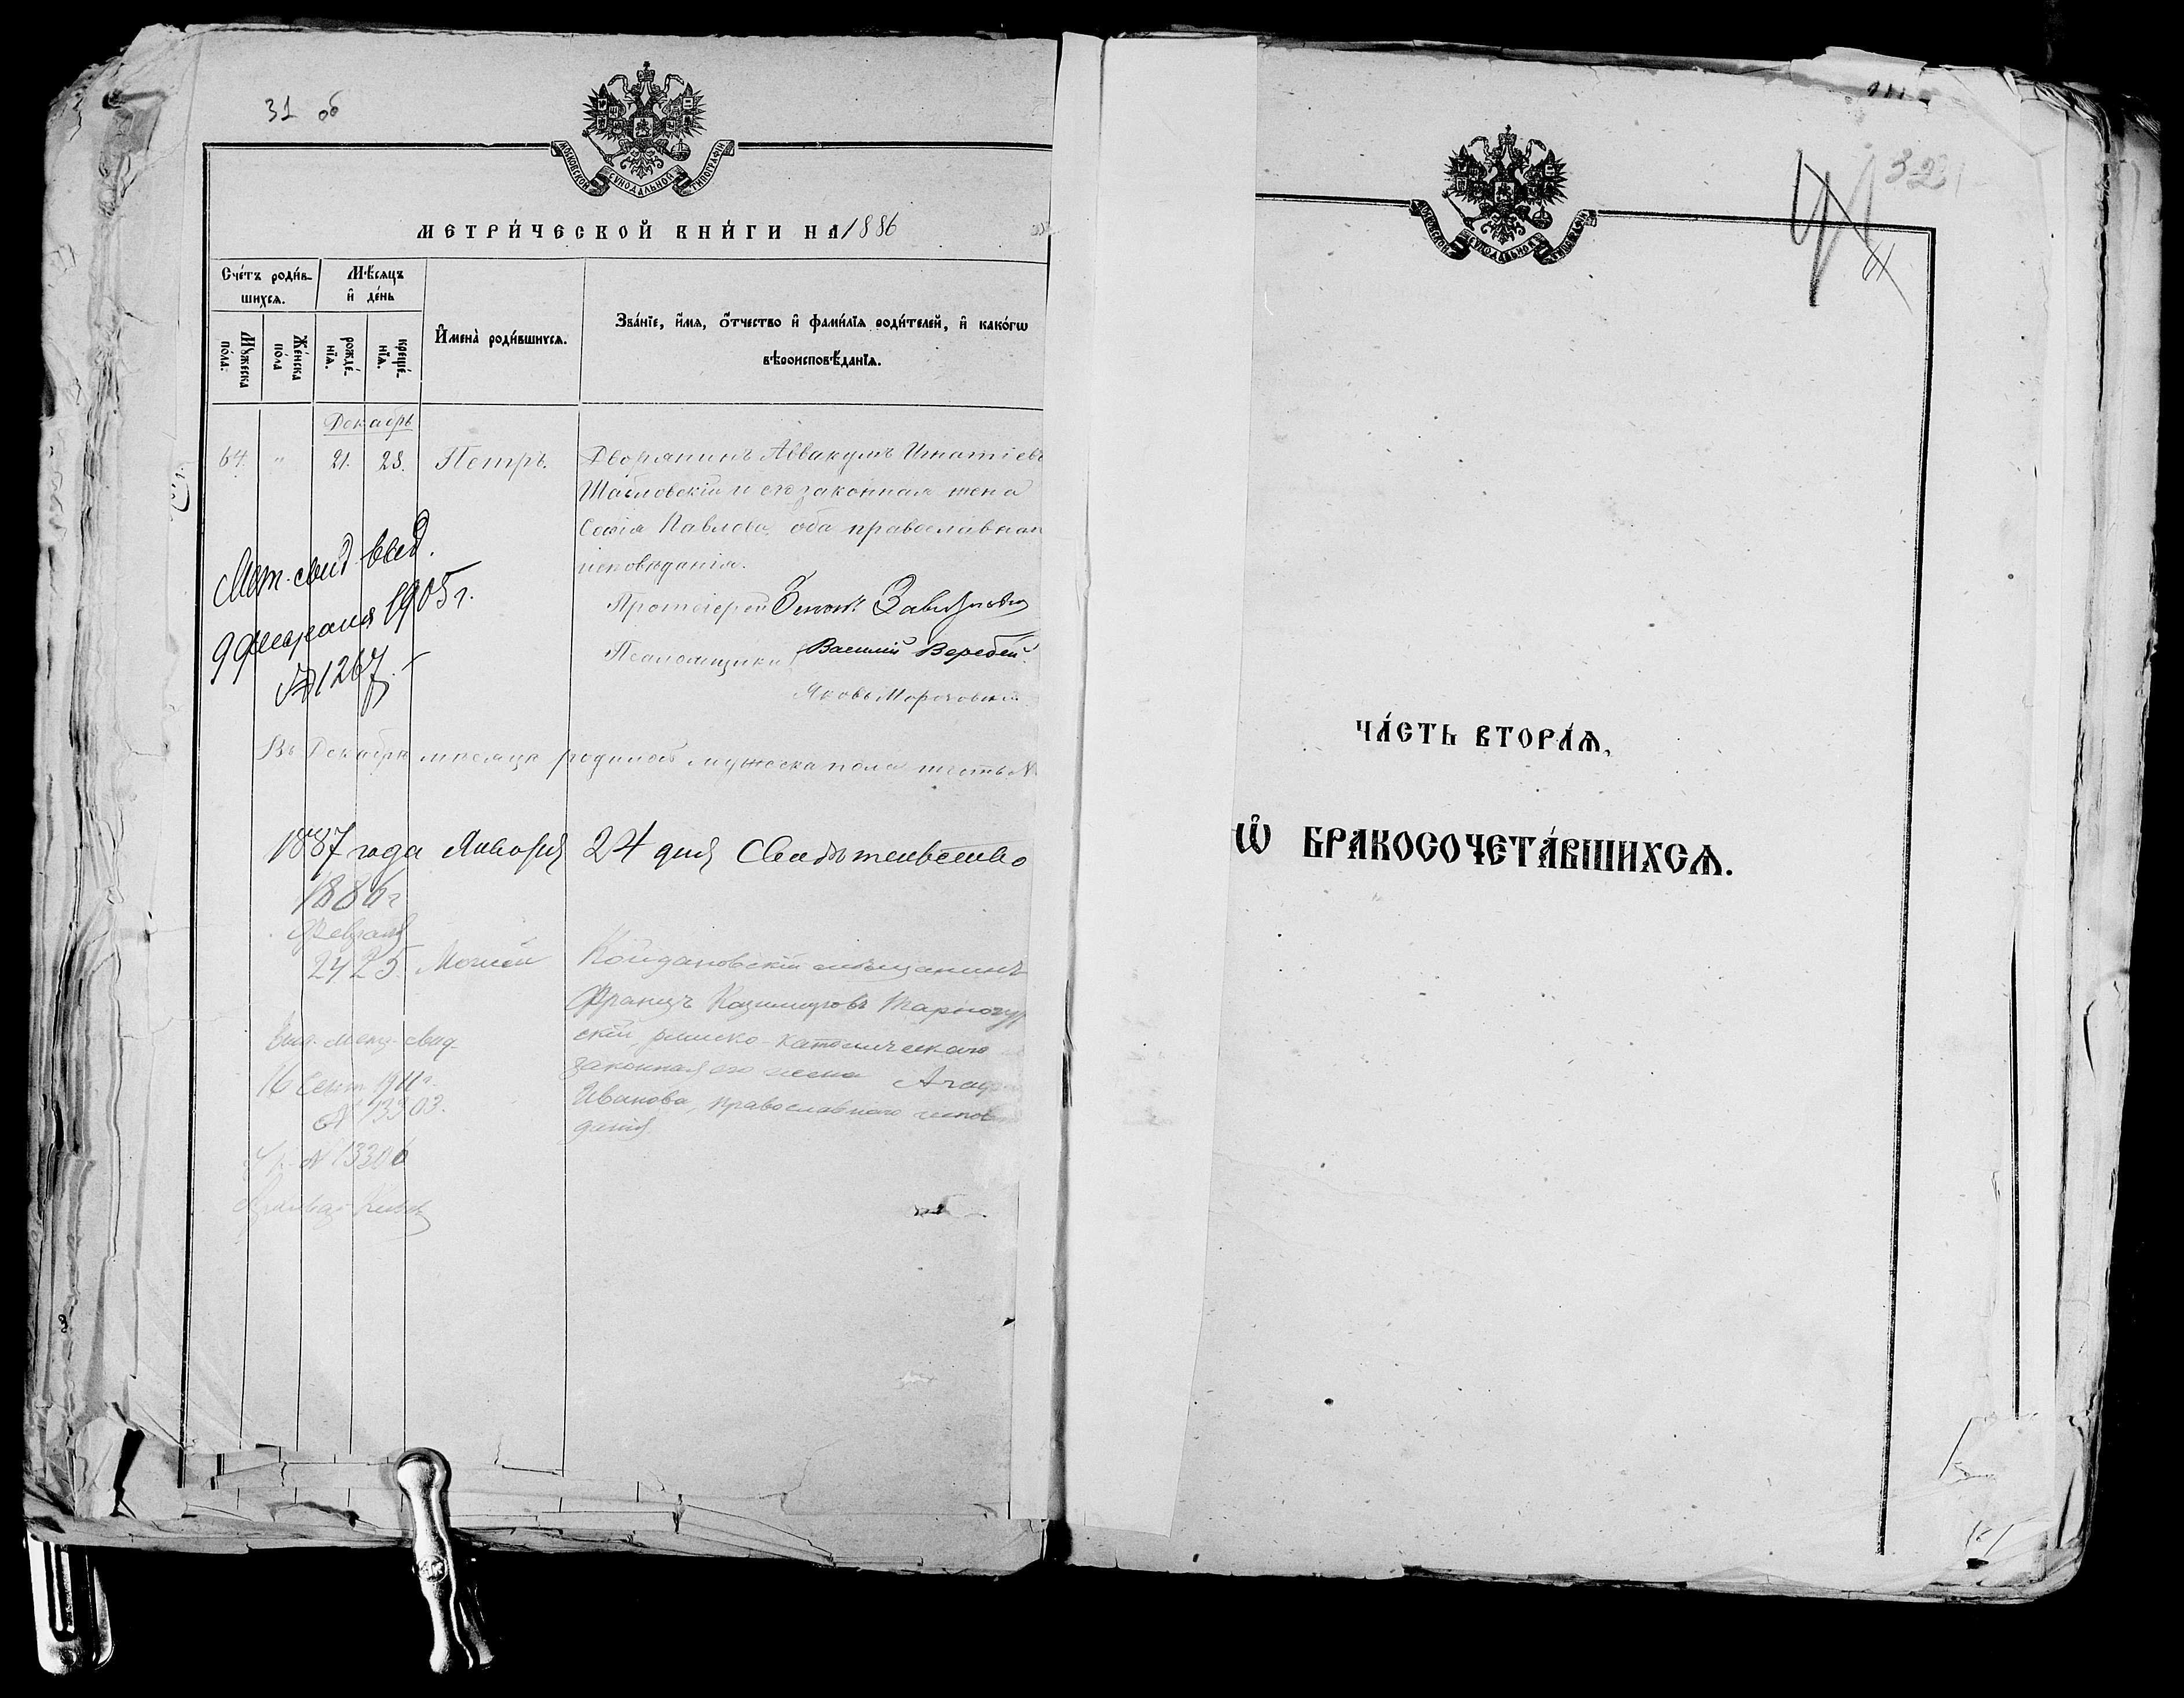 31 об
МОСКОВСКОЙ СѴНОДАЛЬНОЙ ТИПОГРАФІИ
МЕТРИ́ЧЕСКОЙ КНИ́ГИ НА 1886
Сче́тъ роди́в-
шихсѧ.
Мѣ́сѧцъ
и҆ де́нь
Мꙋ́жеска
по́ла.
Же́нска
по́ла
рожде́-
нїѧ.
креще́-
нїѧ.
И҆мена̀ роди́вшихсѧ.
Зва́нїе, и҆́мѧ, ѻ҆́тчество и҆ фами́лїѧ роди́телей, и҆ како́гѡ
вѣроисповѣ́данїѧ.
Декабрь
64. " 21. 28. Петръ. Дворянинъ Аввакумъ Игнатіевъ
и его законная жена
Софія Павлова, оба православнаго
исповѣданія.
Протоіерей
Псаломщики Василій Вербей
Яковъ
Мет. свид. выд.
9 февраля 1905 г.
№ 1267.
Въ Декабрѣ мѣсяцѣ родилось мужеска пола шесть
1887 года Января 24 дня
1886 г
Февраля
24 25. Койдановскій мѣщанинъ
Францъ Казимировъ
скій, римско-католическаго
законная его жена
Иванова, православнаго исповѣ
данія
Выд. метр. свид.
16 Сент. 1911 г.
№ 13303.
№ 13306
МОСКОВСКОЙ СѴНОДАЛЬНОЙ ТИПОГРАФІИ
32
ЧА́СТЬ ВТОРА́Ѧ,
Ѡ҆ БРАКОСОЧЕТА́ВШИХСѦ.